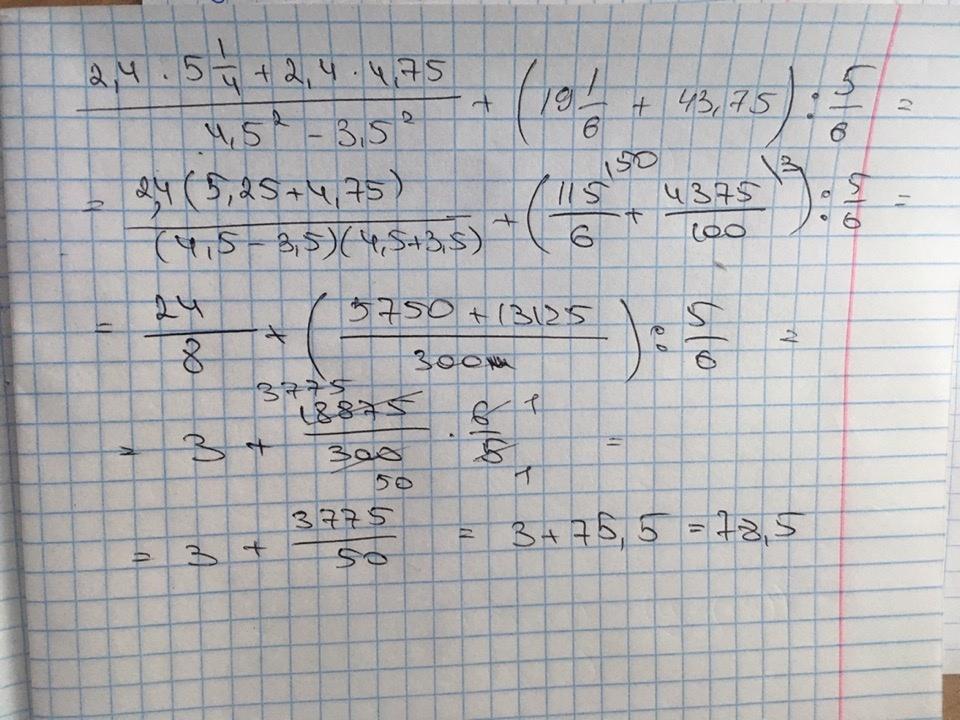 (2,4 · 5 1/4 + 2,4 · 4,75)/(4,5² - 3,5²) + (19 1/6 + 43,75) : 5/6 =
= 2,4(5,25+4,75)/((4,5-3,5)(4,5+3,5)) + (115/6 \50 + 4375/100 \3) : 5/6 =
= 24/8 + ((5750 + 13125)/300) : 5/6 =
3775
= 3 + 18875/300 · 6/5 =
1
50
1
= 3 + 3775/50 = 3 + 75,5 = 78,5